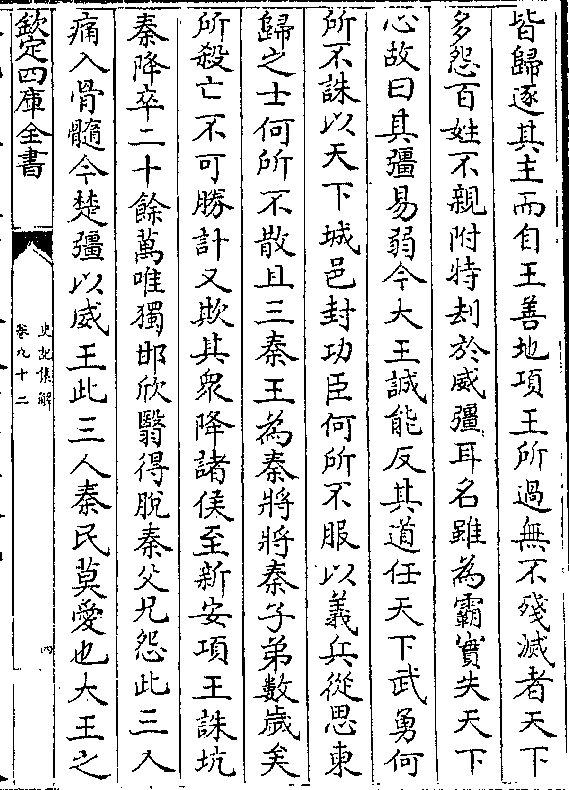 皆歸逐其主而自王善地項王所過無不殘滅者天下
多怨百姓不親附特刦於威彊耳名雖為霸實失天下
心故曰其彊易弱今大王誠能反其道任天下武勇何
所不誅以天下城邑封功臣何所不服以義兵從思東
歸之士何所不散且三秦王為秦將將秦子弟數歲矣
所殺亡不可勝計又欺其衆降諸侯至新安項王詐坑
秦降卒二十餘萬唯獨邯欣翳得脫秦父兄怨此三人
痛入骨髓今楚彊以威王此三人秦民莫愛也大王之
欽定四庫全書
史記集解
卷九十二
四